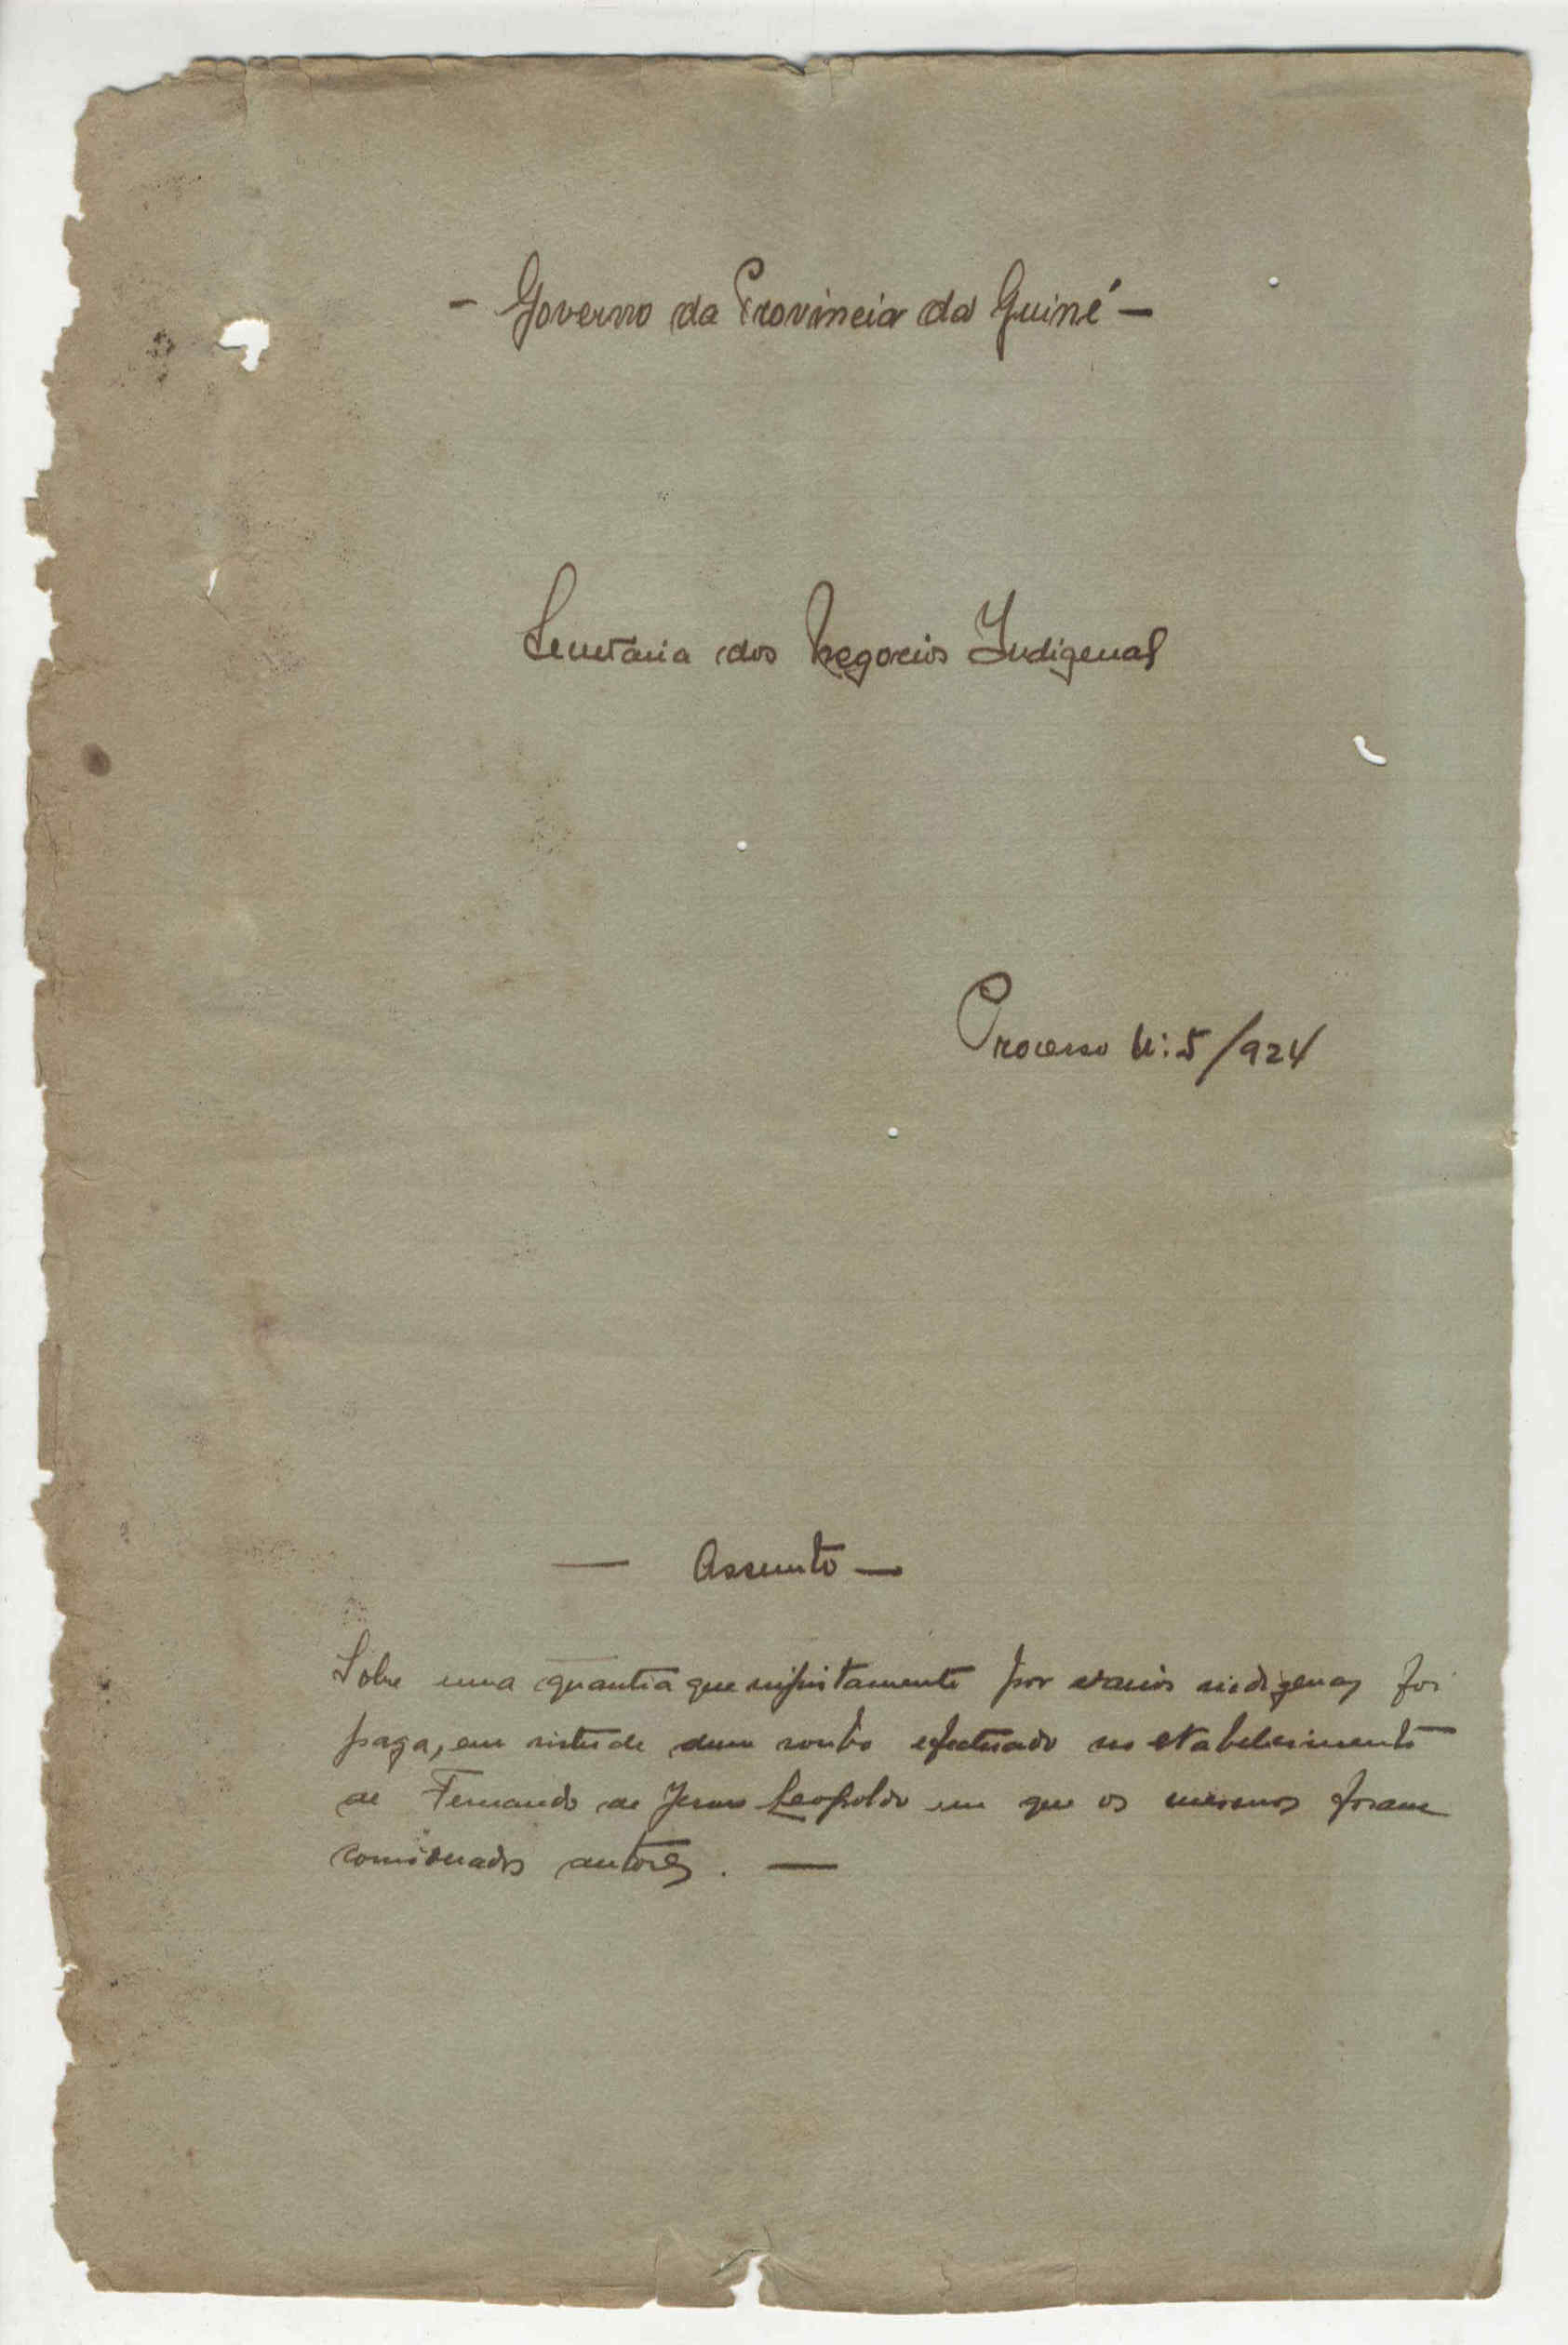 - Governo da Provincia da Guiné -
Secretaria dos Negocios Indigenas
Processo N: 5/924
- Assunto -
Sobre uma quantia que injustamente por varios indigenas foi
paga, em virtude dum roubo efectuado no estabelecimento
de Fernando de Jesus Leopoldo em que os mesmos foram
considerados autores. -